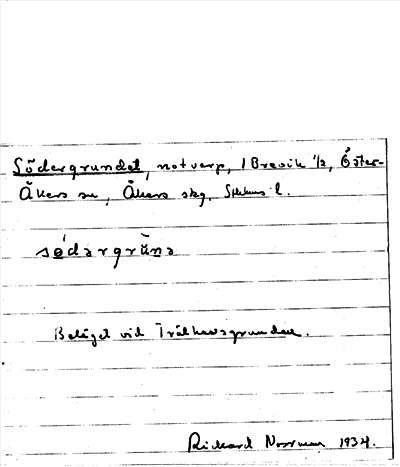 Södergrundet, notvarp, 1 Brevik 1/2, Öster-
Åkers sn, Åkers skg, Sthlms l.
södargruna
Beläget vid Trälhavsgrunden.
Rickard Norrman 1934.